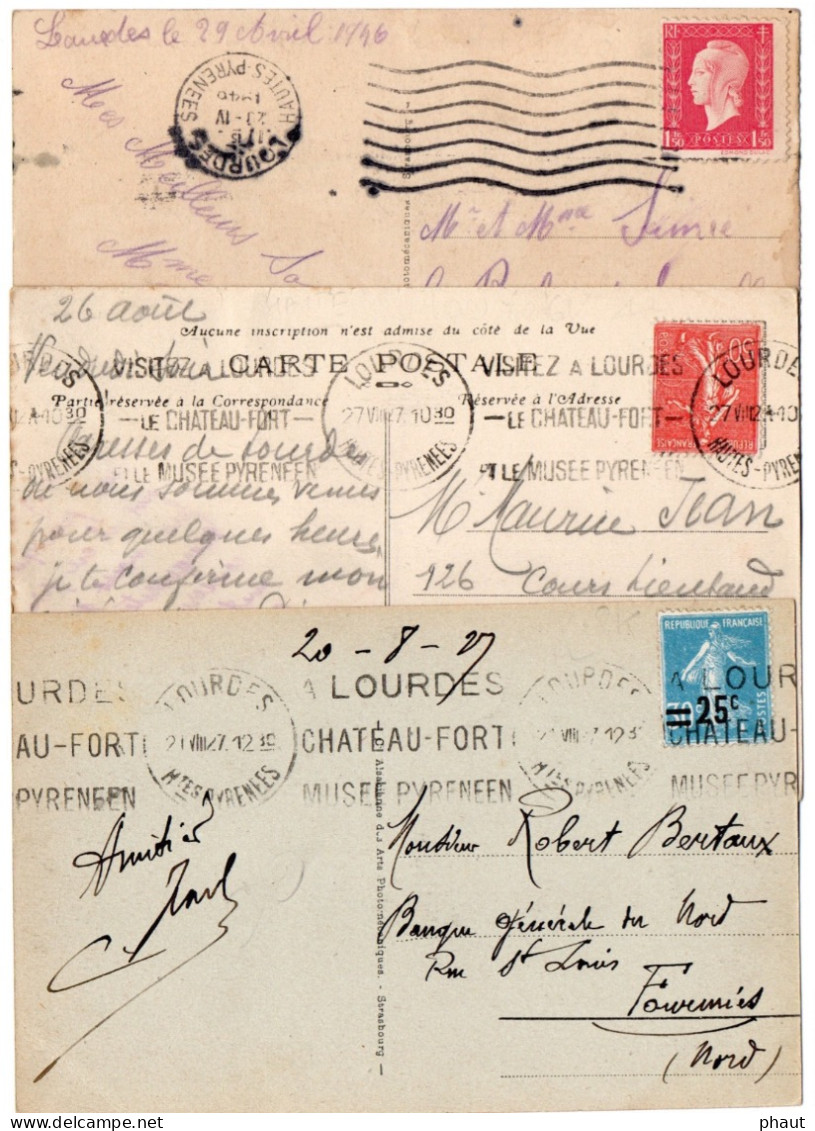 Lourdes le 29 Avril 1946
LOURDES
HAUTES-PYRENEES
1946
RF
1F50 POSTES 1F50
Mes Meilleurs
Mme
Mr et Mme
26 août
Aucune inscription n'est admise du côté de la Vue
CARTE POSTALE
Partie réservée à la Correspondance
Réservée à l'Adresse
VISITEZ A LOURDES
LE CHATEAU-FORT
ET LE MUSEE PYRENEEN
LOURDES
27 VIII 27. 10 30
HAUTES-PYRENEES
VISITEZ A LOURDES
LE CHATEAU-FORT
ET LE MUSEE PYRENEEN
LOURDES
50c
REPUBLIQUE FRANÇAISE
de Lourdes
où nous sommes venus
pour quelques heures,
je te confirme mon
M. Maurice Jean
126 Cours Lieutaud
20-8-27
REPUBLIQUE FRANÇAISE
25c
POSTES
URDES
AU-FORT
PYRENEEN
LOURDES
21 VIII 27. 12 30
HTES PYRENEES
A LOURDES
CHATEAU-FORT
MUSEE PYRENEEN
LOURDES
HTES PYRENEES
A LOUR
CHATEAU-
MUSEE PYR
Amitiés
Cie Alsacienne des Arts Photomécaniques. - Strasbourg
Monsieur Robert Bertaux
Banque Générale du Nord
Rue St Louis
Fourmies
(Nord)
phaut